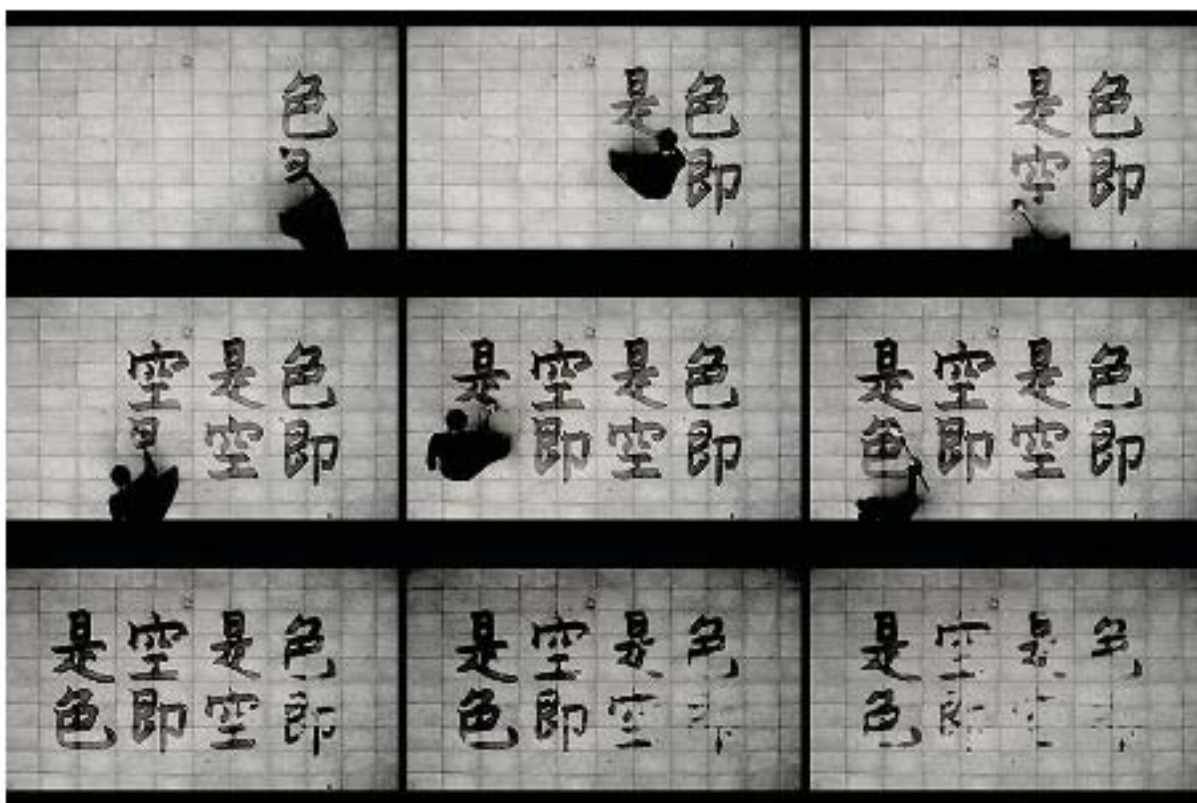 色
色即
是
色即
是空
色即
是空
空
色即
是空
空即
是
色即
是空
空即
是色
色即
是空
空即
是色
色
是空
空即
是色
色
是
空
是色